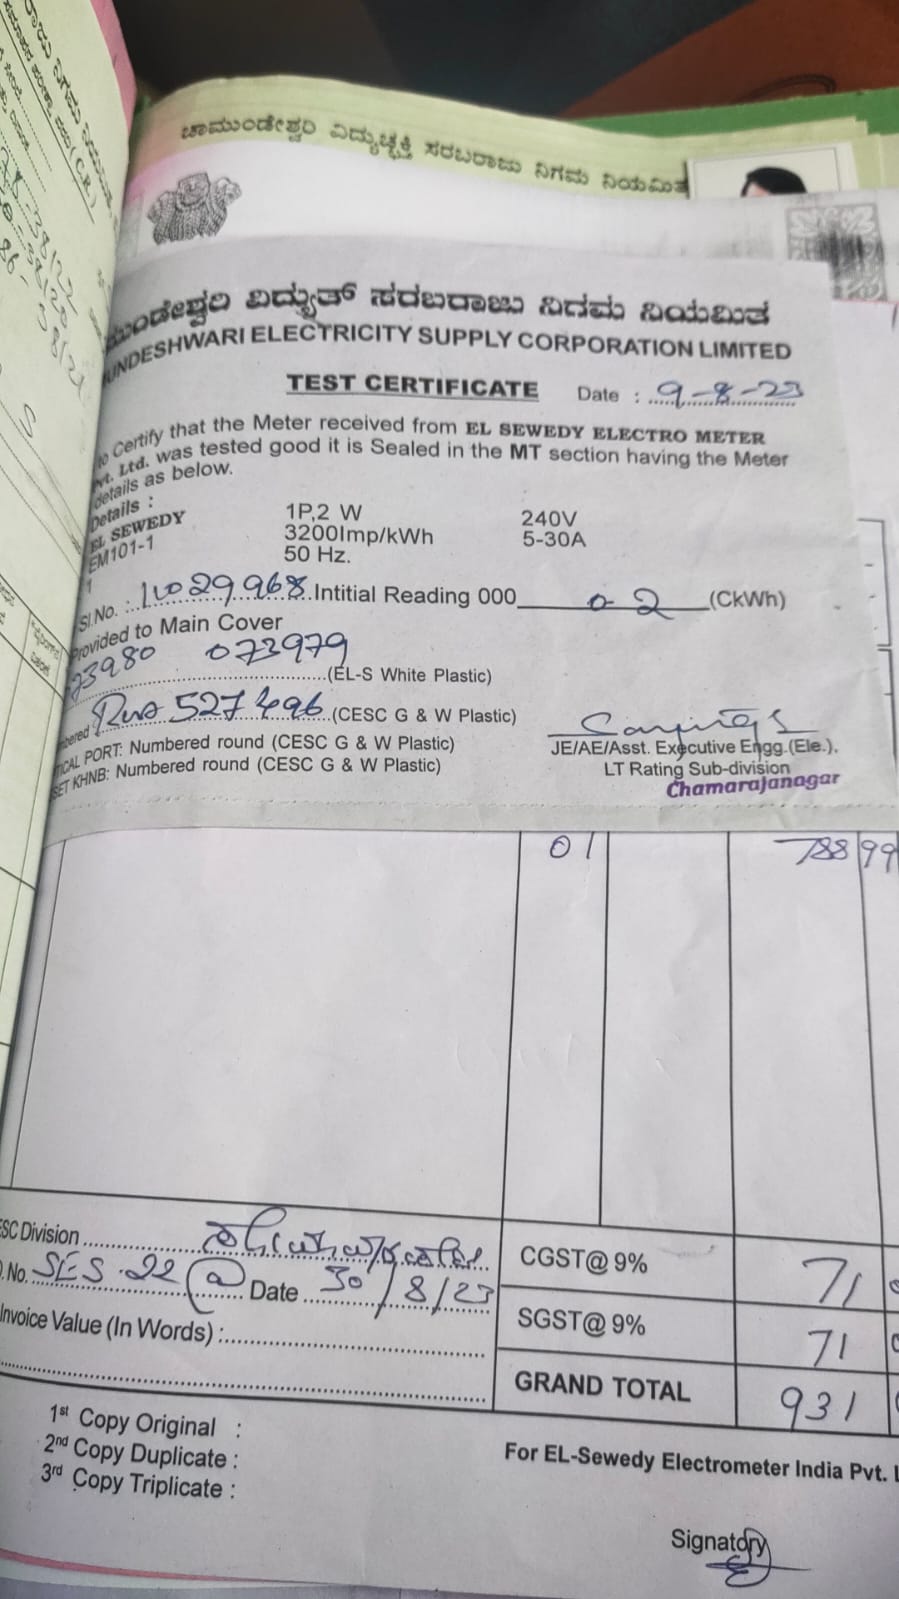 ಚಾಮುಂಡೇಶ್ವರಿ ವಿದ್ಯುಚ್ಛಕ್ತಿ ಸರಬರಾಜು ನಿಗಮ ನಿಯಮಿತ
ಮುಂಡೇಶ್ವರಿ ವಿದ್ಯುತ್ ಸರಬರಾಜು ನಿಗಮ ನಿಯಮಿತ
UNDESHWARI ELECTRICITY SUPPLY CORPORATION LIMITED
TEST CERTIFICATE Date : 9-8-23
to Certify that the Meter received from EL SEWEDY ELECTRO METER
Pvt. Ltd. was tested good it is Sealed in the MT section having the Meter
details as below.
Details :
EL SEWEDY 1P,2 W 240V
EM101-1 3200Imp/kWh 5-30A
1 50 Hz.
Sl.No. : 11029968 Intitial Reading 000 0-2 (CkWh)
Provided to Main Cover
73980 073979 (EL-S White Plastic)
527496 (CESC G & W Plastic)
TICAL PORT: Numbered round (CESC G & W Plastic) JE/AE/Asst. Executive Engg.(Ele.).
SET KHNB: Numbered round (CESC G & W Plastic) LT Rating Sub-division
Chamarajanagar
01 788 99
ESC Division CGST@ 9% 71
No. SES-22 Date 30/8/23
SGST@ 9% 71
Invoice Value (In Words) :
GRAND TOTAL 931
1st Copy Original :
2nd Copy Duplicate :
3rd Copy Triplicate :
For EL-Sewedy Electrometer India Pvt. L
Signatory